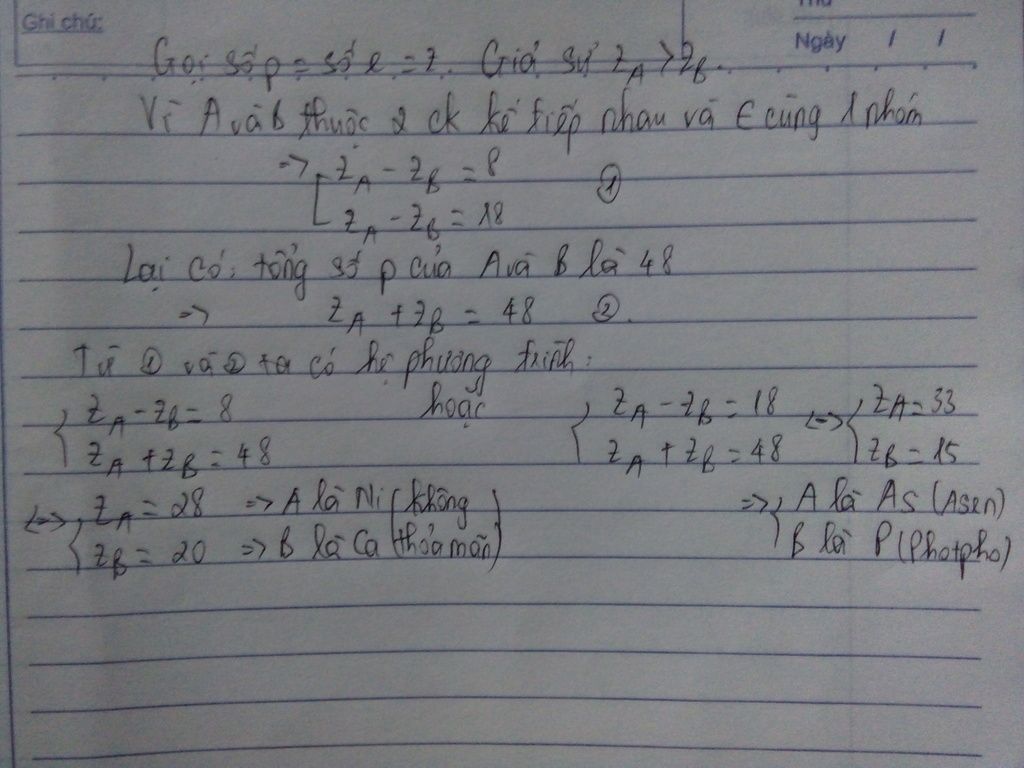 Ghi chú:
Thứ
Ngày / /
Gọi số p = số e = Z. Giả sử Z_A > Z_B.
Vì A và B thuộc 2 ck kế tiếp nhau và ∈ cùng 1 nhóm
=> [ Z_A - Z_B = 8 ①
Z_A - Z_B = 18
Lại có: tổng số p của A và B là 48
=> Z_A + Z_B = 48 ②.
Từ ① và ② ta có hệ phương trình:
{ Z_A - Z_B = 8 hoặc { Z_A - Z_B = 18 <=> { Z_A = 33
Z_A + Z_B = 48 Z_A + Z_B = 48 Z_B = 15
<=> { Z_A = 28 => A là Ni (không => { A là As (Asen)
Z_B = 20 => B là Ca thỏa mãn) B là P (Photpho)